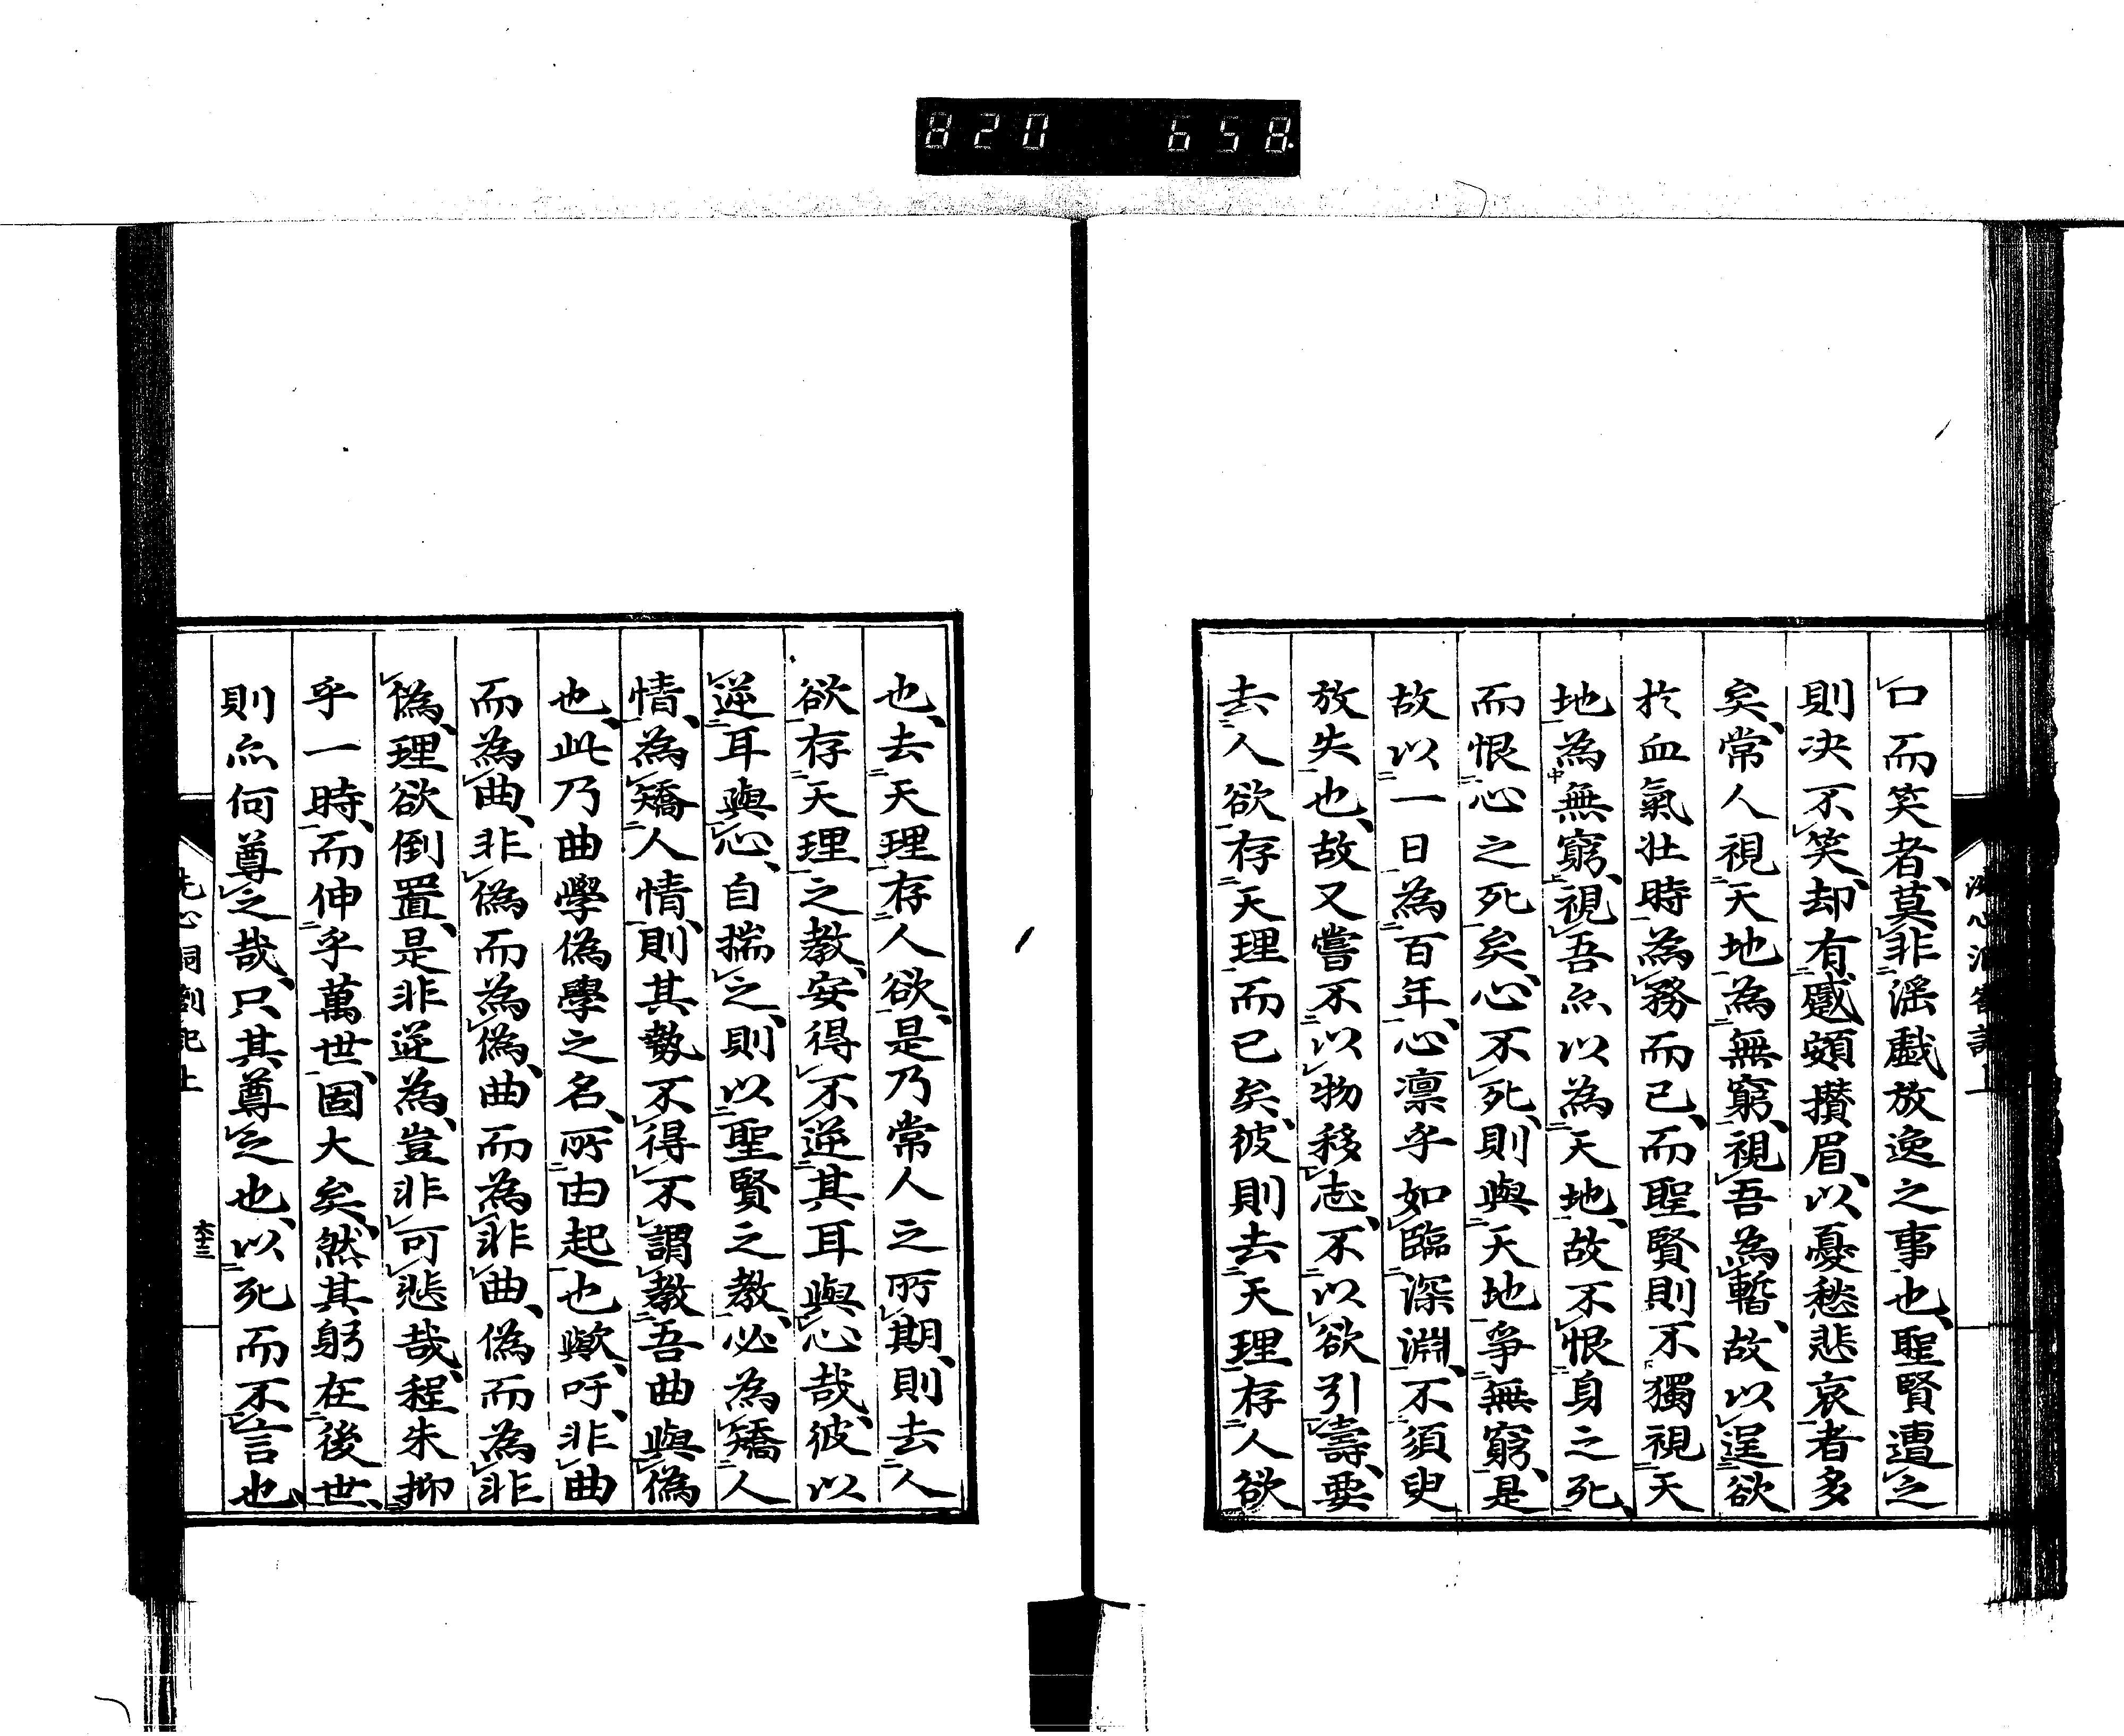 820 658
口而笑者、莫非滛戯放逸之事也、聖賢遭之
則决不笑、却有蹙頞攅眉、以憂愁悲哀者多
矣、常人視天地為無窮、視吾為暫、故以逞欲
於血氣壮時為務而已、而聖賢則不獨視天
地為無窮、視吾亦以為天地、故不恨身之死、
而恨心之死矣、心不死、則與天地爭無窮、是
故以一日為百年、心凛乎如臨深淵、不須臾
放失也、故又嘗不以物移志、不以欲引壽、要
去人欲存天理而已矣、彼則去天理存人欲
也、去天理存人欲、是乃常人之所期、則去人
欲存天理之教、安得不逆其耳與心哉、彼以
逆耳與心、自揣之、則以聖賢之教、必為矯人
情、為矯人情、則其勢不得不謂教吾曲與偽
也、此乃曲學偽學之名、所由起也歟、吁、非曲
而為曲、非偽而為偽、曲而為非曲、偽而為非
偽、理欲倒置、是非逆為、豈非可悲哉、程朱抑
乎一時、而伸乎萬世、固大矣、然其躬在後世、
則亦何尊之哉、只其尊之也、以死而不言也、
洗心洞劄記上
六十三